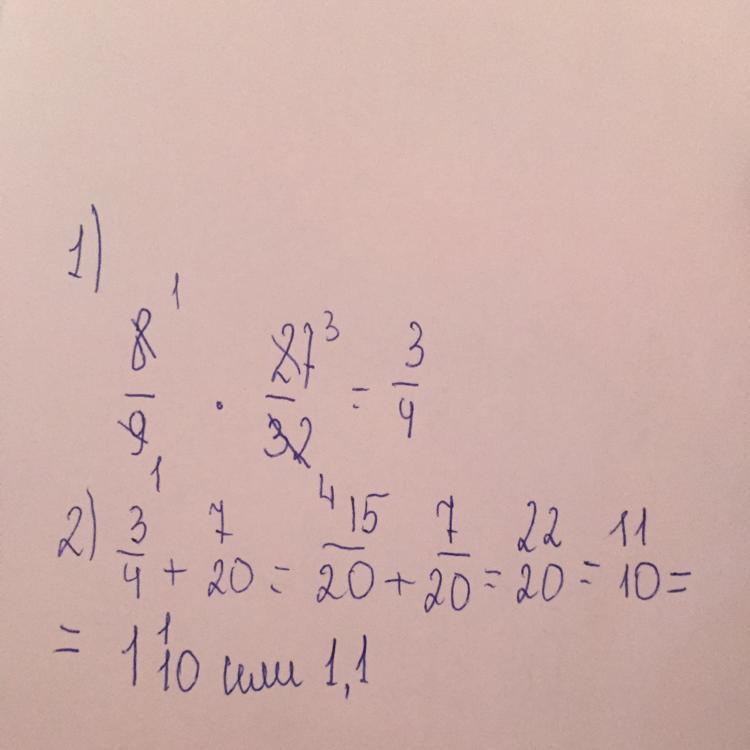 1)
8/9 1 1 · 27/32 3 4 = 3/4
2) 3/4 + 7/20 = 15/20 + 7/20 = 22/20 = 11/10 =
= 1 1/10 или 1,1